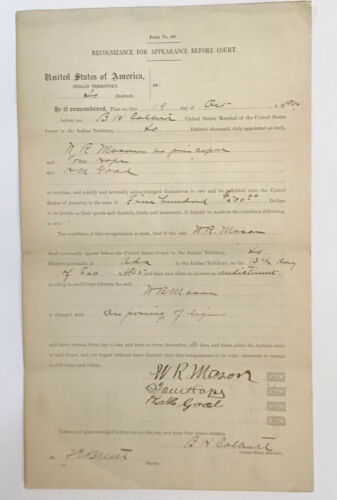 RECOGNIZANCE FOR APPEARANCE BEFORE COURT.
United States of America,
INDIAN TERRITORY, ss:
So District.
Be it remembered, That on this 19 day of Oct A. D.
before me, B H Colbert, United States Marshal of the United States
Court in the Indian Territory, So District aforesaid, duly appointed as such,
W. R. Mason as principal
and Tom Hope
and
as sureties, and jointly and severally acknowledged themselves to owe and be indebted unto the United
States of America in the sum of Five hundred $500.00 Dollars
to be levied on their goods and chattels, lands and tenements, if default be made in the condition following
to-wit:
The condition of this recognizance is such, that if the said W. R. Mason
shall personally appear before the United States Court in the Indian Territory, So.
District aforesaid, at Ada in the Indian Territory, on the 13th day
of Feb 1905 and then and there to answer an indictment
pending in said Court wherein the said
W R Mason
is charged with Disposing of liquor
and there remain from day to day and term to term thereafter, and then and there abide the further order
of said Court, and not depart without leave thereof, then this recognizance to be void, otherwise to remain
in full force and virtue.
W R Mason
Tom Hope
Taken and acknowledged before me on the day and year first above written.
B H Colbert
United States Marshal.
By
Deputy.